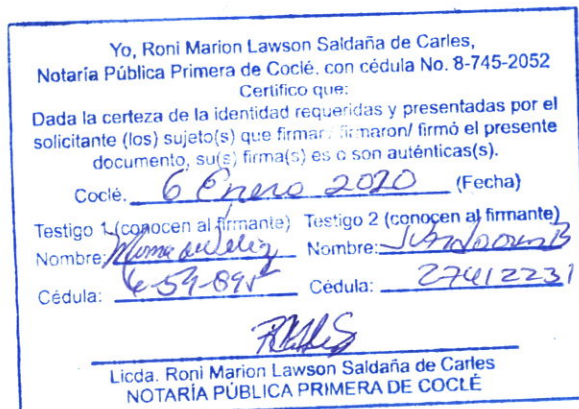 Yo, Roni Marion Lawson Saldaña de Carles,
Notaría Pública Primera de Coclé, con cédula No. 8-745-2052
Certifico que:
Dada la certeza de la identidad requeridas y presentadas por el
solicitante (los) sujeto(s) que firmar, firmaron/ firmó el presente
documento, su(s) firma(s) es o son auténticas(s).
Coclé, 6 Enero 2020 (Fecha)
Testigo 1 (conocen al firmante) Testigo 2 (conocen al firmante)
Nombre: Nombre:
Cédula: Cédula: 27412231
Licda. Roni Marion Lawson Saldaña de Carles
NOTARÍA PÚBLICA PRIMERA DE COCLÉ